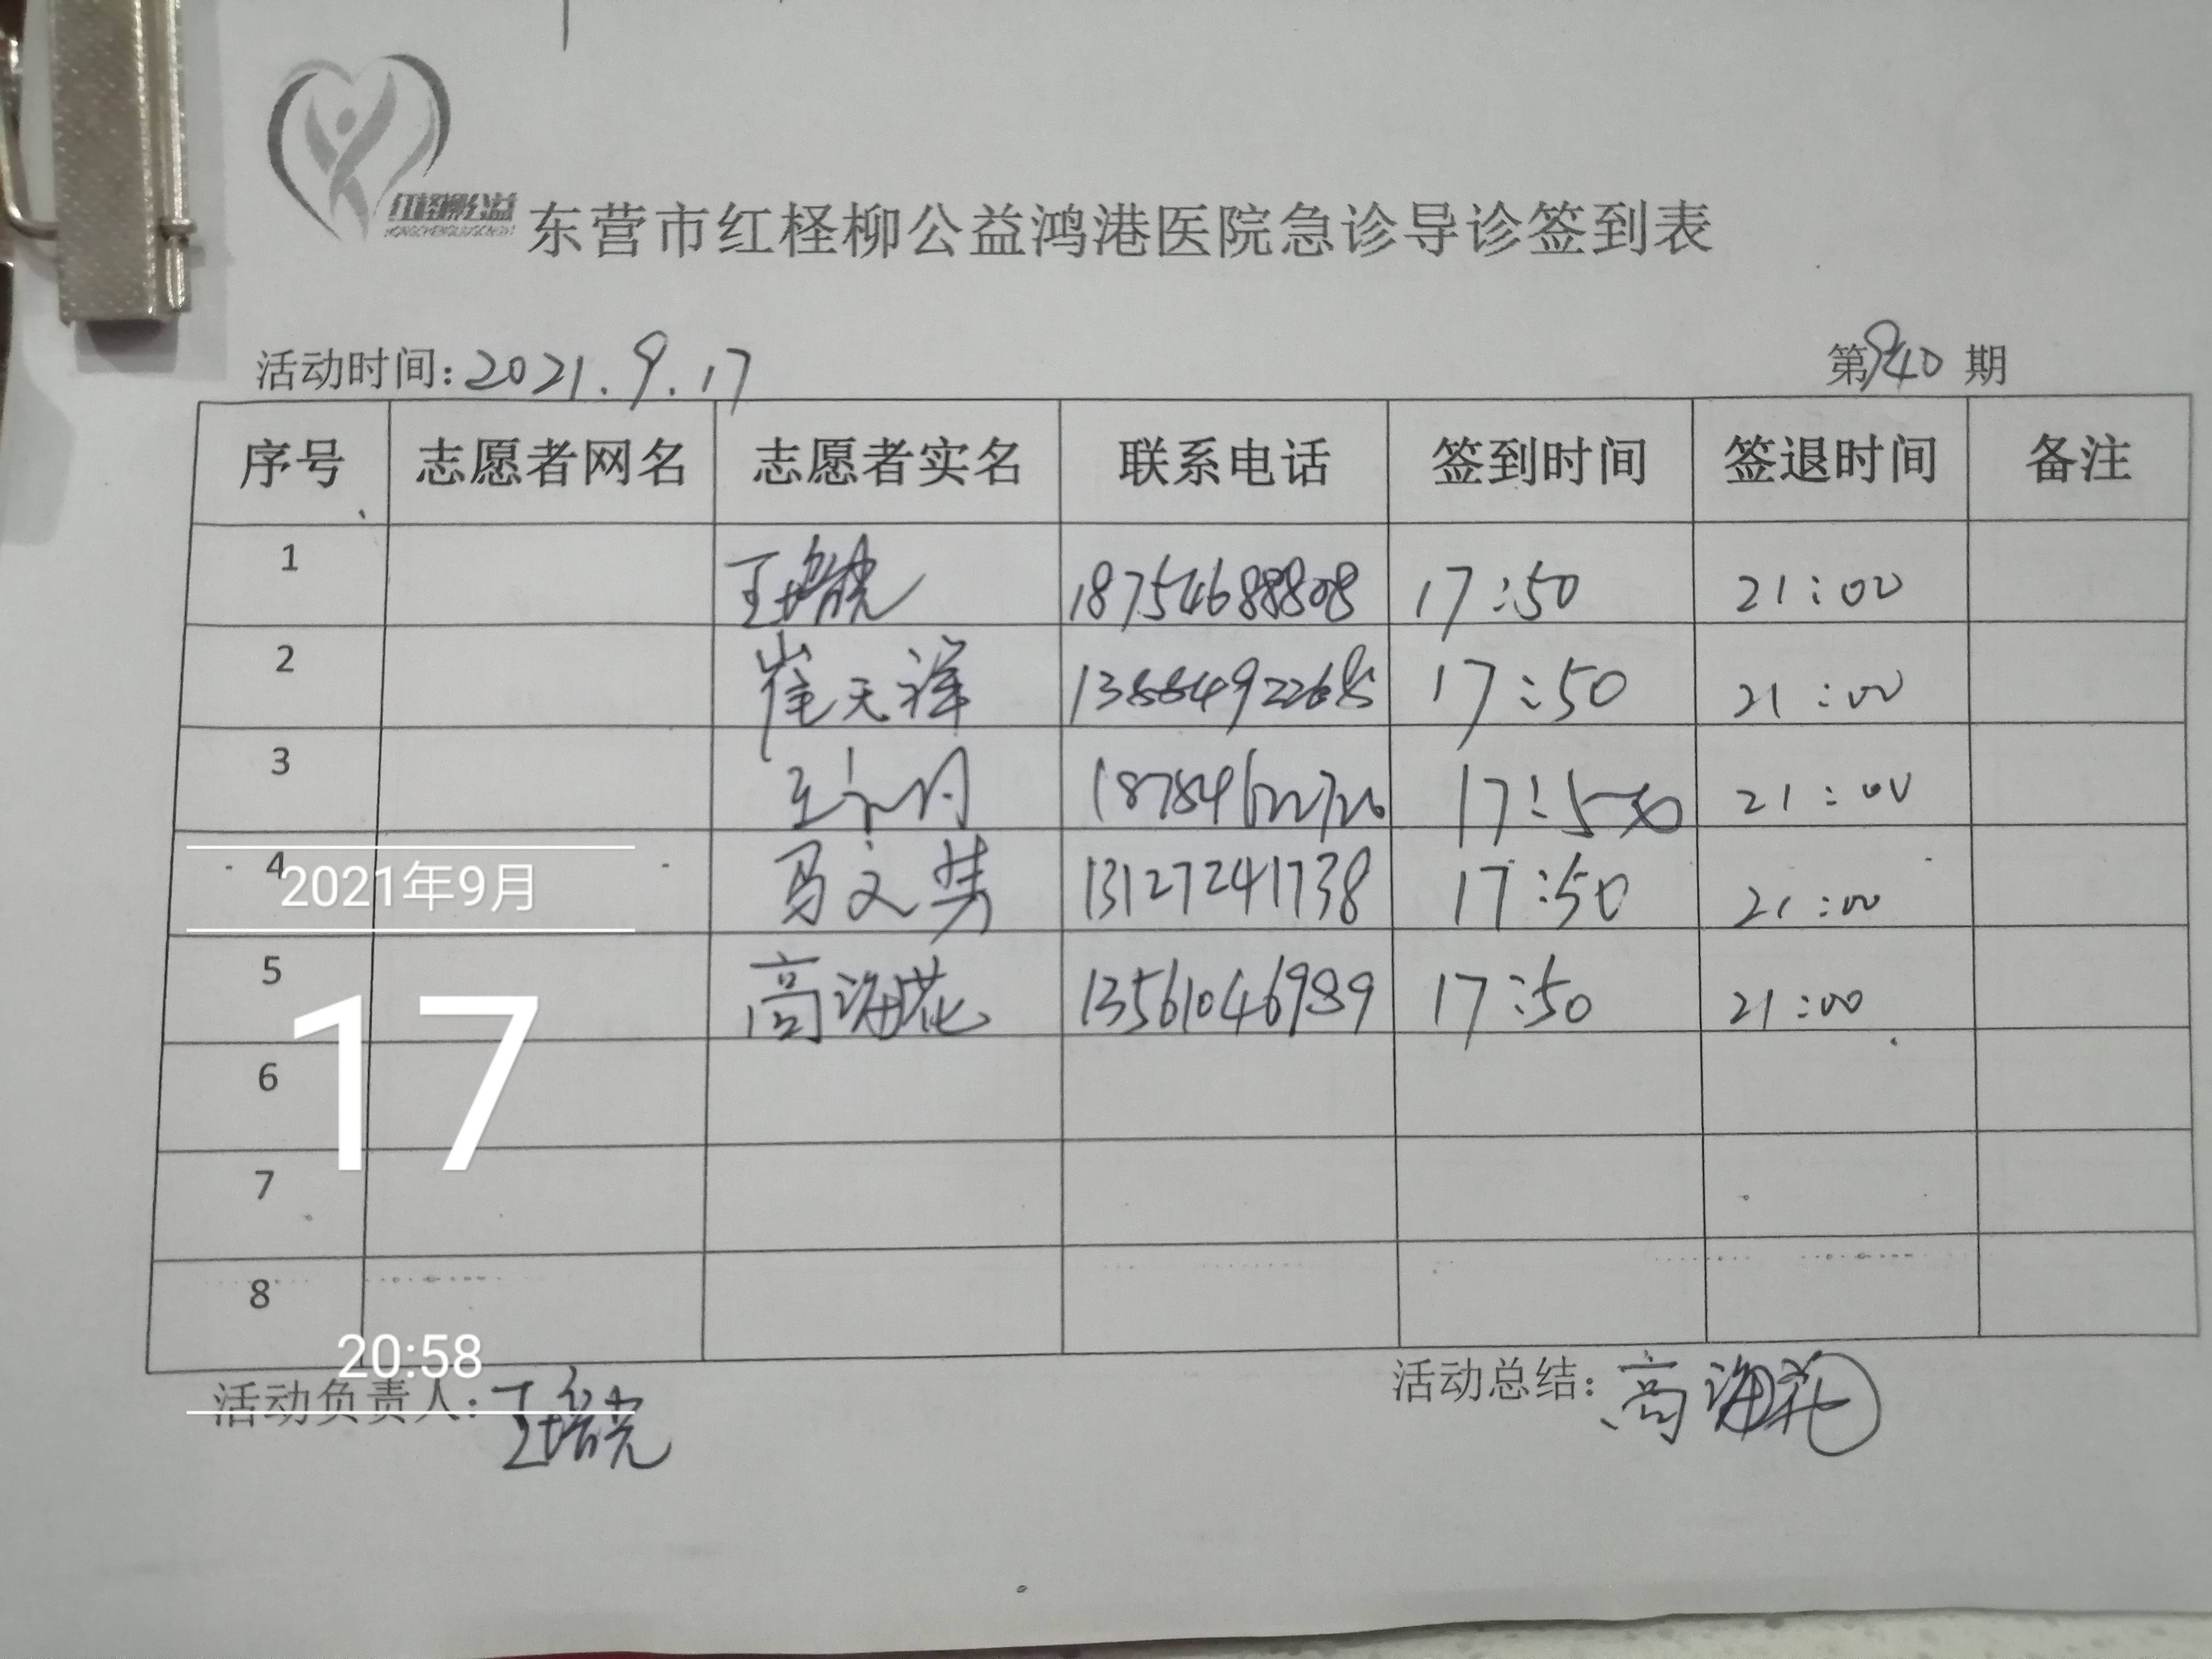 红柽柳公益
东营市红柽柳公益鸿港医院急诊导诊签到表
活动时间:2021.9.17 第940期
序号 志愿者网名 志愿者实名 联系电话 签到时间 签退时间 备注
1 18754688808 17:50 21:00
2 崔天祥 17:50 21:00
3 17:50 21:00
4 马文芳 13127241738 17:50 21:00
2021年9月
5 高海花 13561046989 17:50 21:00
17
6
7
8
20:58
活动负责人: 活动总结:高海花